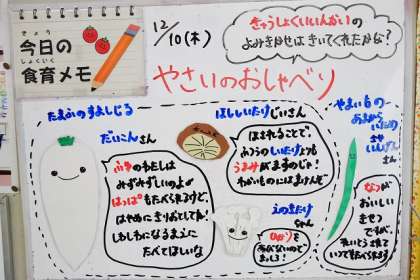 きょう
今日の
しょくいく
食育メモ
12/10(木)
きゅうしょくいいんかいの
よみきかせは きいてくれたかな?
やさいのおしゃべり
たまふのすましじる
だいこんさん
ふゆのわたしは
みずみずしいのよ
はっぱもたべられるけど、
はやめにきりおとしてね!
しわしわになるまえに
たべてほしいな
ほししいたけじいさん
ほされることで、
ふつうのしいたけよりも
うまみがますのじゃ!
わかいものにはまけんぞ
えのきたけ
ちゃん
ひかりを
あびないので
まっしろ!
やまいもの
あまからいため
さや
いんげん
さん
なつが
おいしい
きせつ
ですが、